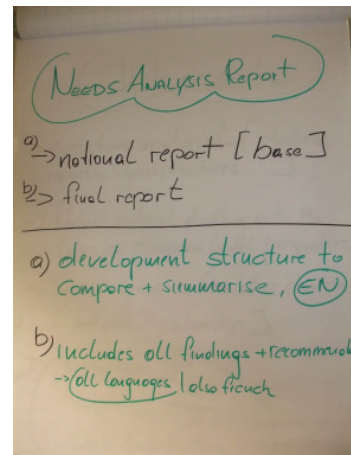 NEEDS ANALYSIS Report
a) -> national report [base]
b) -> final report
a) development structure to
compare + summarise, EN
b) includes all findings + recommend
-> all languages | also french